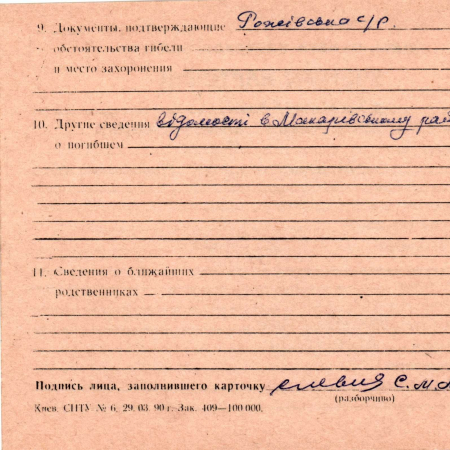 9. Документы, подтверждающие Рожівська с/р.
обстоятельства гибели
и место захоронения
10. Другие сведения відомості в Макарівському рай
о погибшем
11. Сведения о ближайших
родственниках
Подпись лица, заполнившего карточку С. М.
(разборчиво)
Киев. СПТУ № 6. 29. 03. 90 г. Зак. 409—100 000.